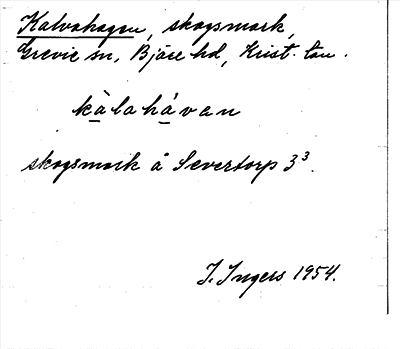 Kalvahagen, skogsmark,
Grevie sn, Bjäre hd, Krist. län.
kàlahávan
skogsmark å Severtorp 3³.
I. Ingers 1954.